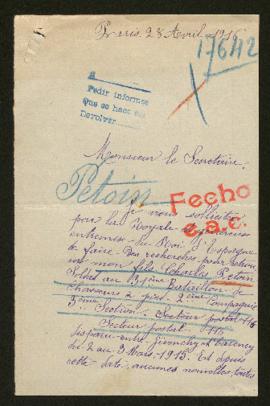 Paris 28 Avril 1916
17642
Pedir informes
Que se hace
Devolver
Monsieur le Secrétaire,
Petoin
Fecho
e.a.c.
Je viens solliciter
par la Royale
entremise du Roi d'Espagne
de faire des recherches pour retrouver
mon fils Charles Petoin
Soldat au 13ème Bataillon de
chasseurs à pied 2ème Compagnie
3ème Section. Secteur postal 116
Secteur postal 116
disparu entre Givenchy et Carency
du 2 au 3 Mars 1915. Et depuis
cette date aucunes nouvelles, toutes